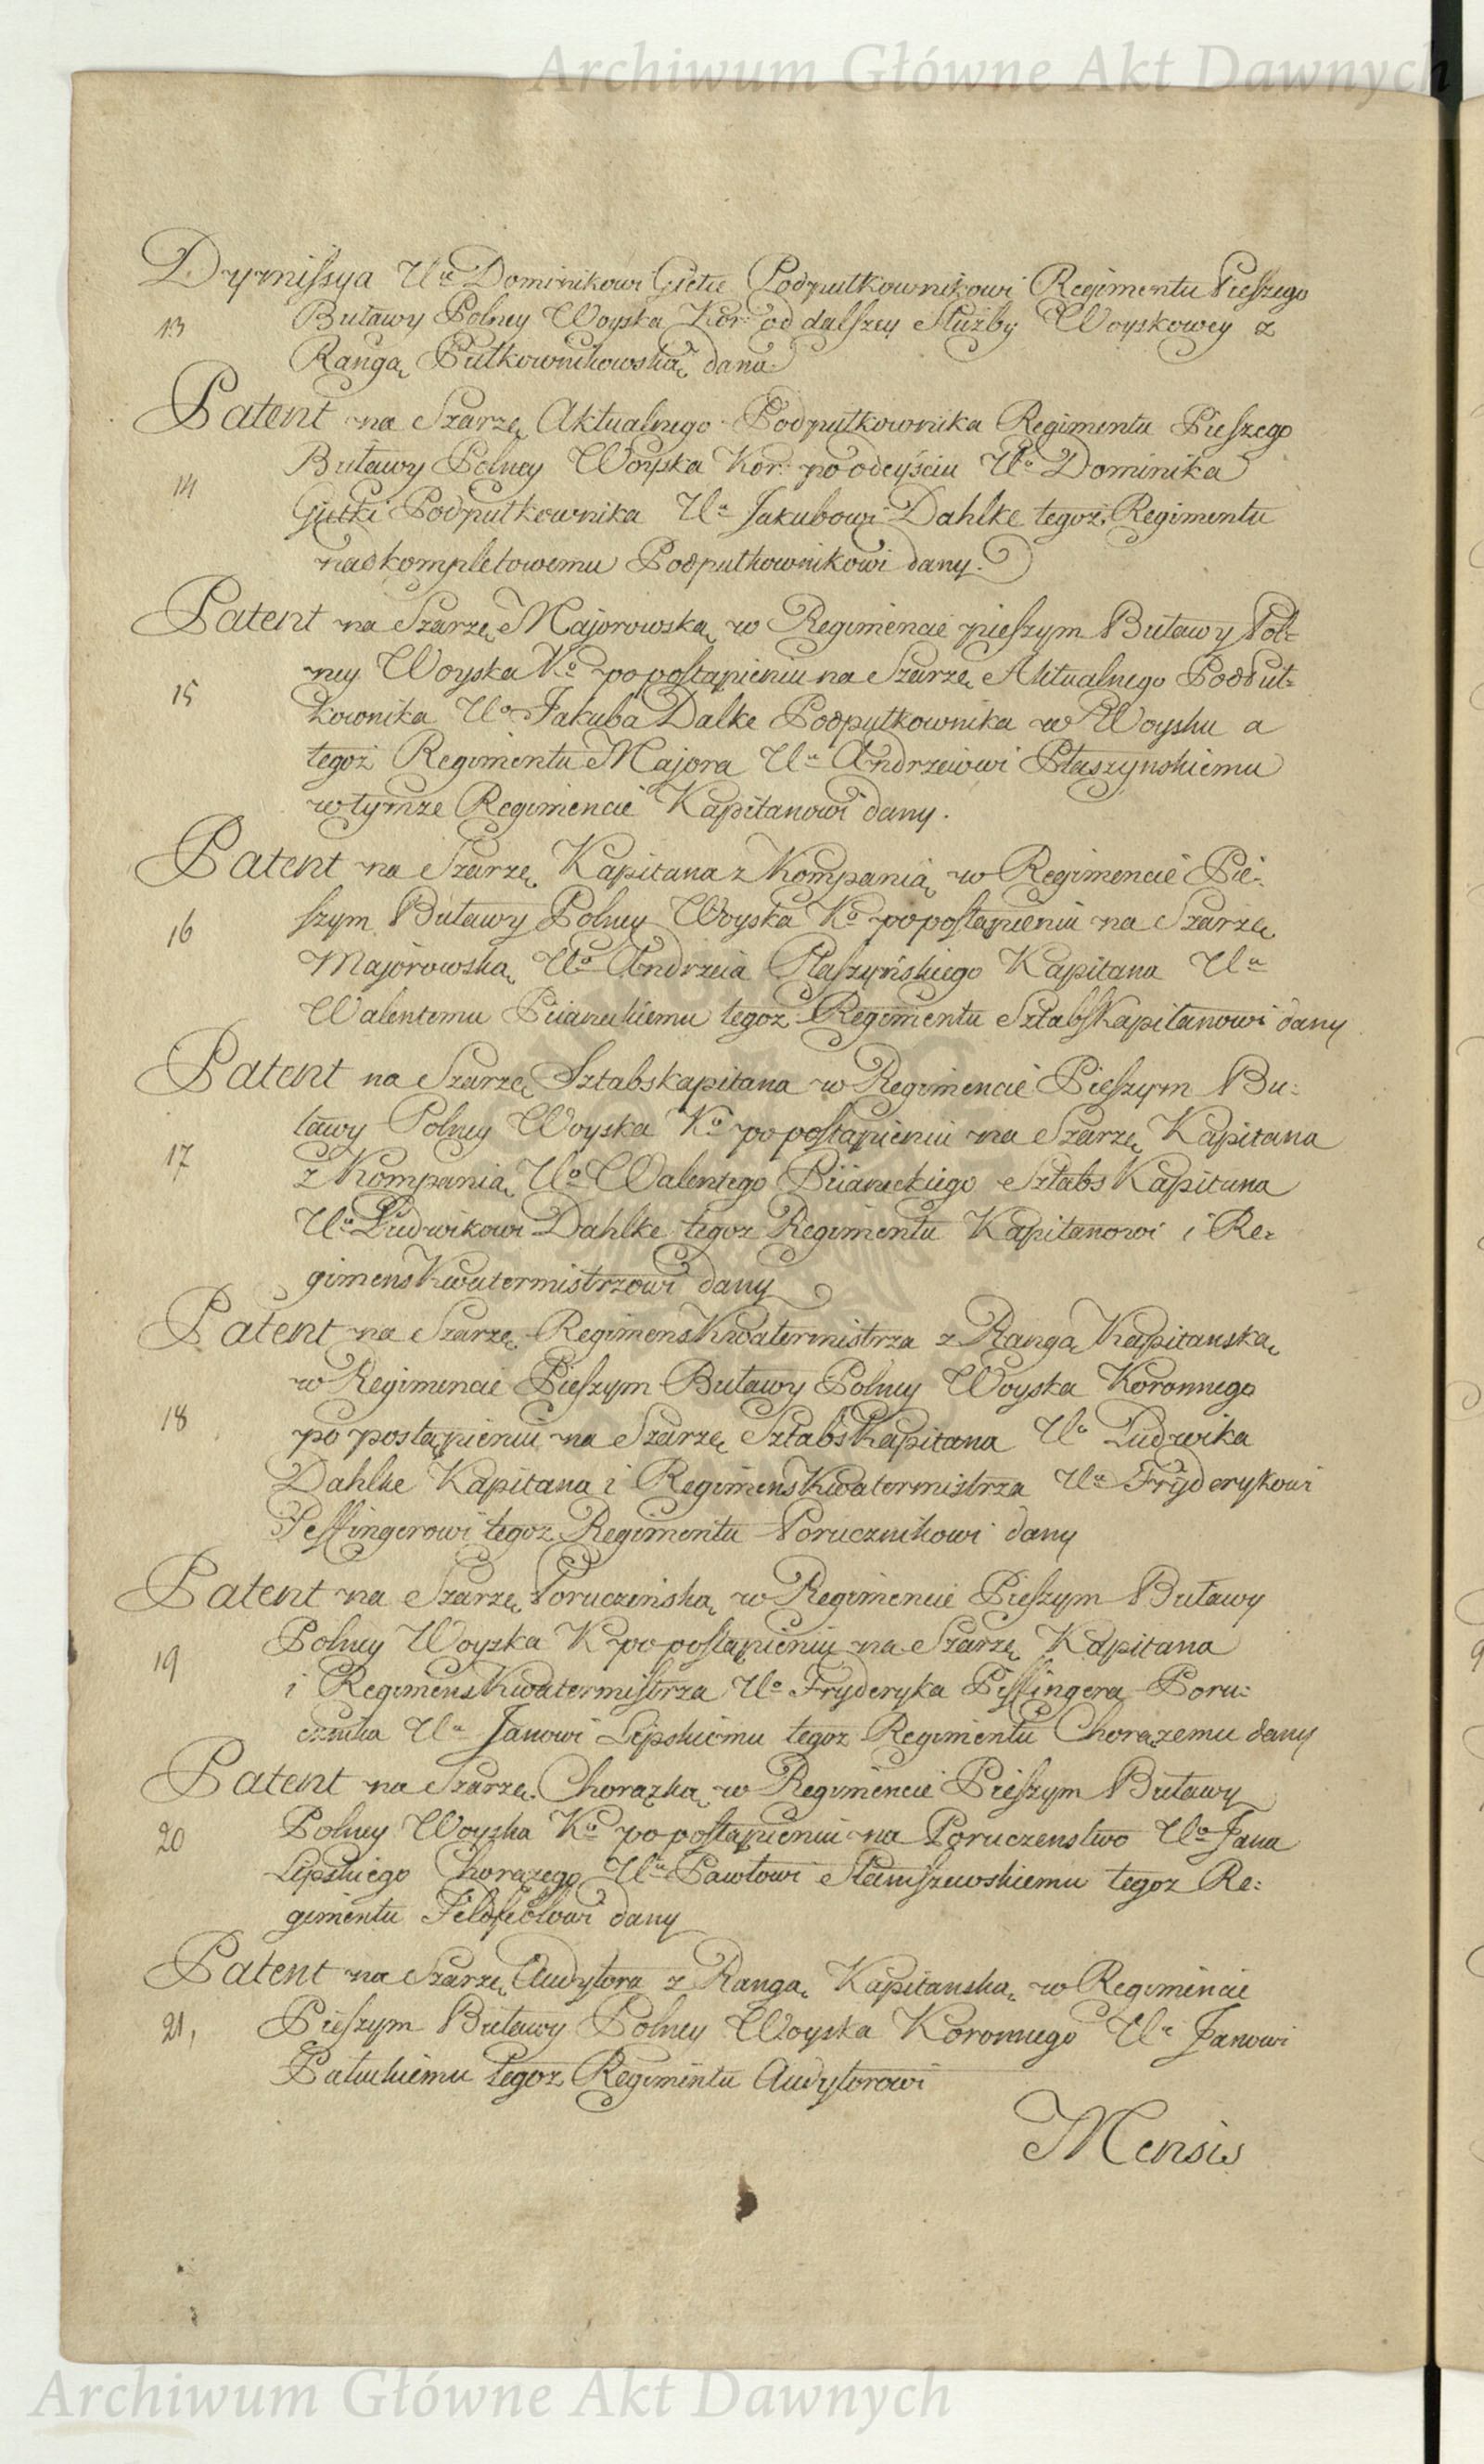 Archiwum Główne Akt Dawnych
Dymissya Ur Dominikowi Podpułkownikowi Regimentu Pieszego
13 Buławy Polney Woyska Kor: od dalszey Służby Woyskowey z
Rangą Pułkownikowską dana.
Patent na Szarzę Aktualnego Podpułkownika Regimentu Pieszego
Buławy Polney Woyska Kor: po odeyściu Uo Dominika
14
Podpułkownika Ur Jakubowi Dahlke tegoż Regimentu
nadkompletowemu Podpułkownikowi dany.
Patent na Szarzę Majorowską w Regimencie pieszym Buławy Pol=
ney Woyska Ko po postąpieniu na Szarzę Aktualnego Podpuł=
15
kownika Uo Jakuba Dalke Podpułkownika w Woysku a
tegoż Regimentu Majora Ur Andrzeiowi Płaszynskiemu
w tymze Regimencie Kapitanowi dany.
Patent na Szarzę Kapitana z Kompanią w Regimencie Pie=
16 szym Buławy Polney Woyska Ko po postąpieniu na Szarzę
Majorowską Uo Andrzeia Płaszyńskiego Kapitana Ur
Walentemu tegoz Regimentu SztabsKapitanowi dany
Patent na Szarzę Sztabskapitana w Regimencie Pieszym Bu=
ławy Polney Woyska Ko po postąpieniu na Szarzę Kapitana
17 z Kompanią Uo Walentego SztabsKapitana
Ur Ludwikowi Dahlke tegoz Regimentu Kapitanowi i Re=
gimensKwatermistrzowi dany
Patent na Szarzę RegimensKwatermistrza z Rangą Kapitanską
w Regimencie Pieszym Buławy Polney Woyska Koronnego
18 po postąpieniu na Szarzę SztabsKapitana Uo Ludwika
Dahlke Kapitana i RegimensKwatermistrza Ur Fryderykowi
Pessingerowi tegoz Regimentu Porucznikowi dany
Patent na Szarzę Poruczeńską w Regimencie Pieszym Buławy
Polney Woyska K po postąpieniu na Szarzę Kapitana
19
i RegimensKwatermistrza Uo Fryderyka Pessingera Poru=
cznika Ur Janowi Lipskiemu tegoz Regimentu Chorązemu dany
Patent na Szarzę Chorązką w Regimencie Pieszym Buławy
20 Polney Woyska Ko po postąpieniu na Poruczenstwo Uo Jana
Lipskiego Chorązego Ur Pawłowi Staniszewskiemu tegoz Re=
gimentu Feldfeblowi dany
Patent na Szarzę Audytora z Rangą Kapitanską w Regimencie
21, Pieszym Buławy Polney Woyska Koronnego Ur Janowi
tegoz Regimentu Audytorowi
Mensis
Archiwum Główne Akt Dawnych